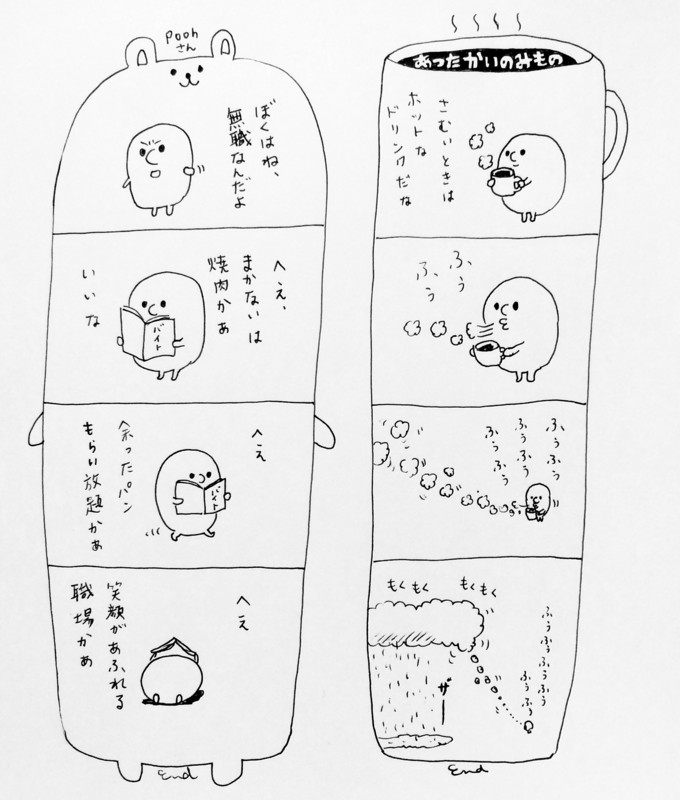 あったかいのみもの
さむいときは
ホットな
ドリンクだな
ふぅ
ふぅ
ふぅふぅ
ふぅふぅ
ふぅふぅ
もくもく
もくもく
ふぅふぅふぅふぅ
ふぅふぅ
ザー
End
Pooh
さん
ぼくはね、
無職なんだよ
へえ、
まかないは
焼肉かぁ
バイト
いいな
へえ
バイト
余ったパン
もらい放題かぁ
へえ
笑顔があふれる
職場かぁ
End